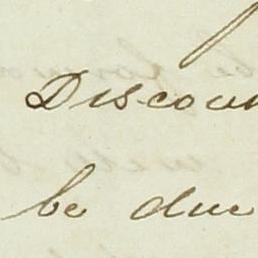 Discou
be due